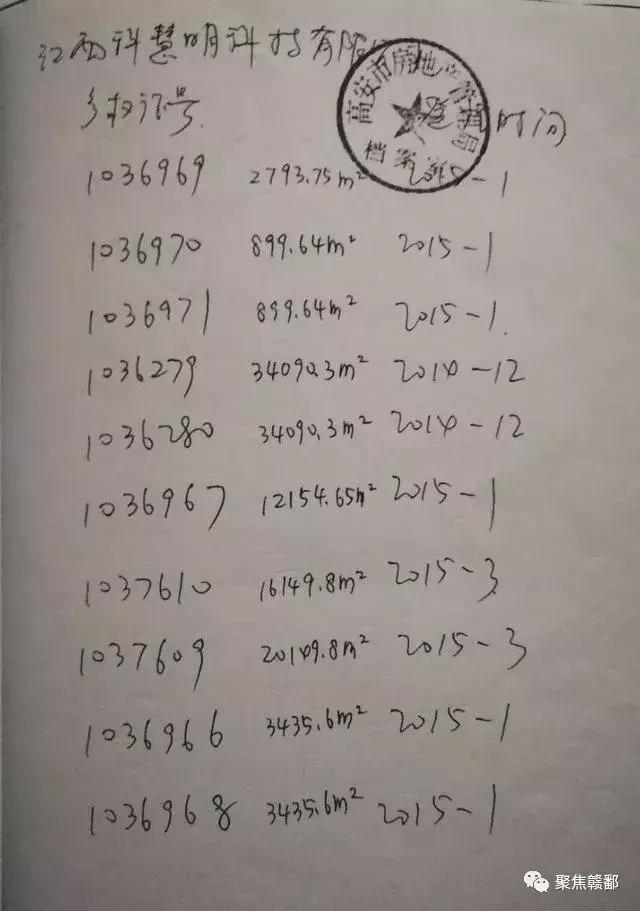 江西科慧明科技有限
高安市房地产管理局
档案
产权证号 时间
1036969 2793.75m² 2015-1
1036970 899.64m² 2015-1
1036971 899.64m² 2015-1.
1036279 34090.3m² 2014-12
1036280 34090.3m² 2014-12
1036967 12154.65m² 2015-1
1037610 16149.8m² 2015-3
1037609 20149.8m² 2015-3
1036966 3435.6m² 2015-1
1036968 3435.6m² 2015-1
聚焦赣鄱